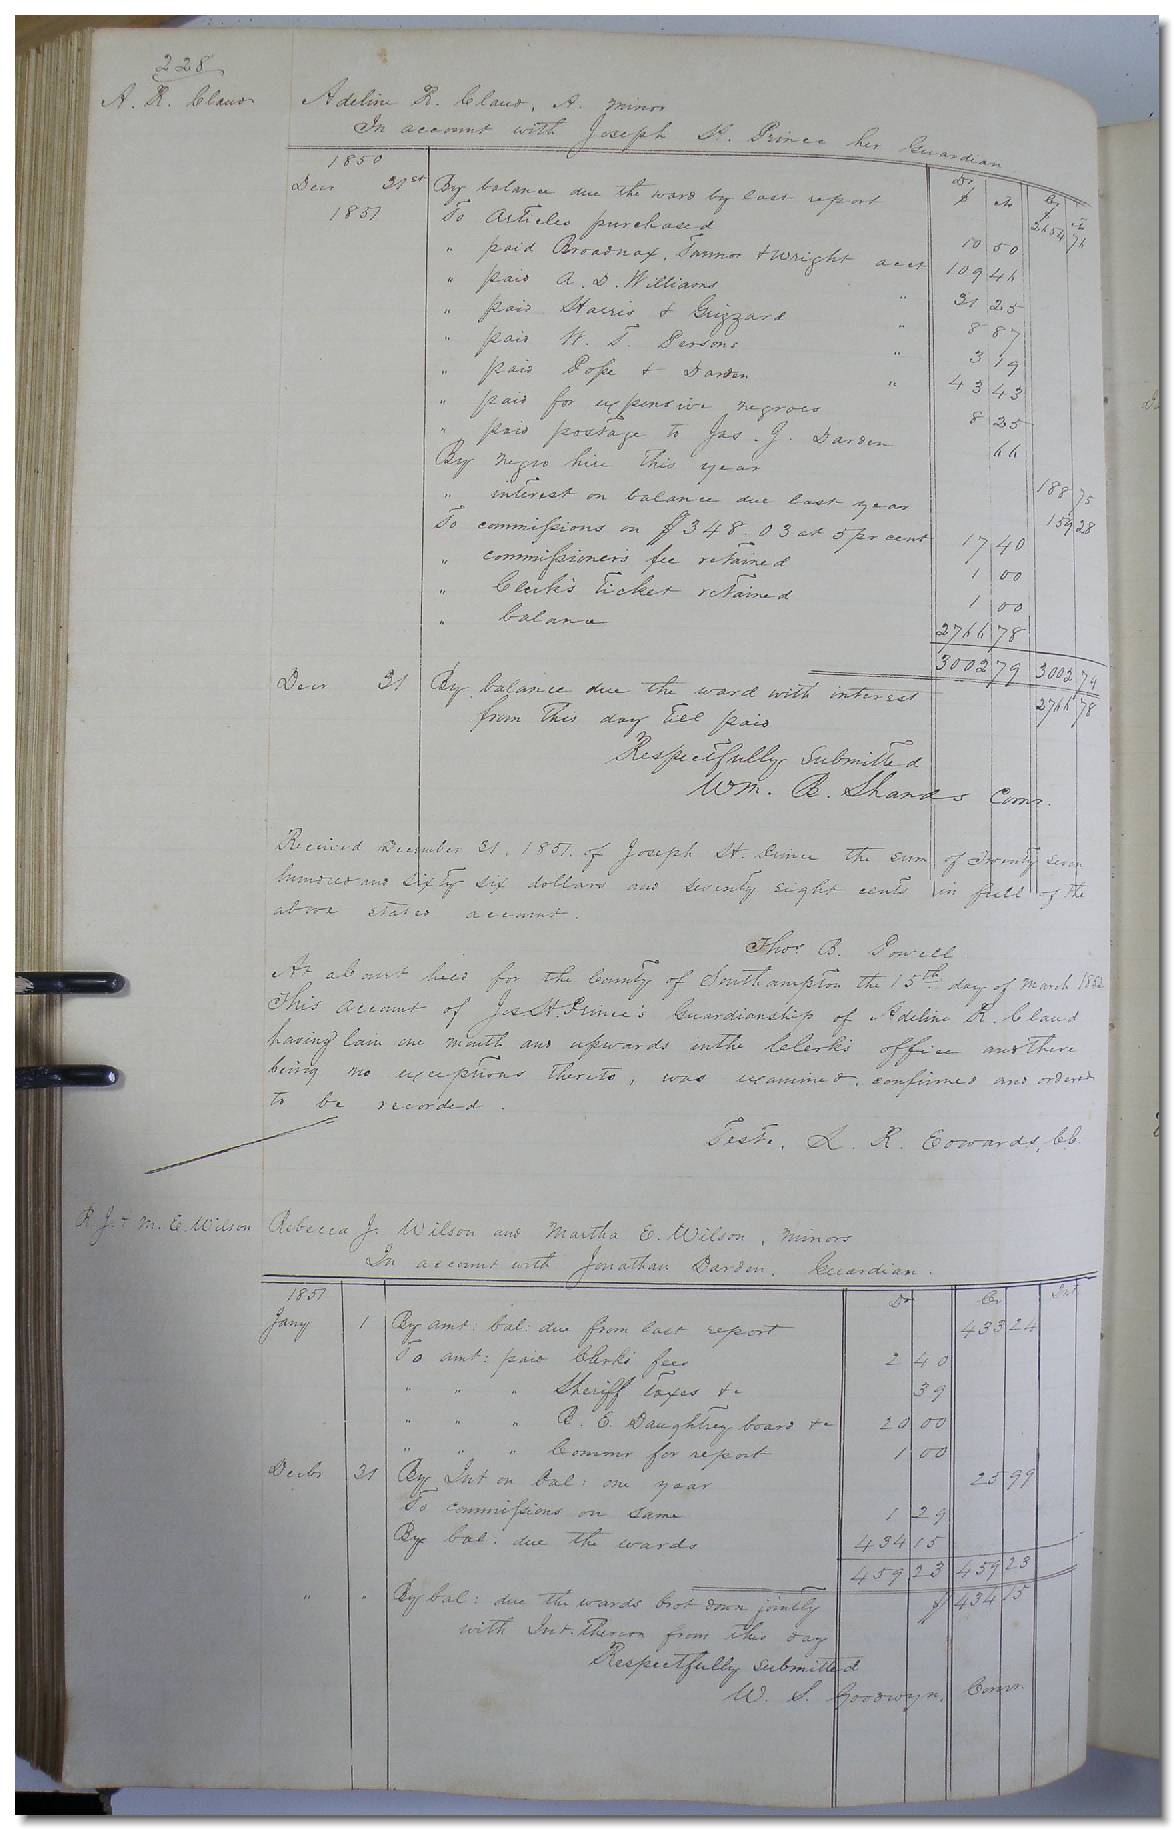 228
A. R. Claud
Adeline R. Claud, A. minor
In account with Joseph H. Prince her Guardian
1850
Dr Cr
$ cts $ cts
Decr 31st By balance due the ward by last report 2654 76
1851 To Articles purchased 10 50
" paid Broadnax, Tanner & Wright acct 109 46
" paid A. D. Williams " 31 25
" paid Harris & Grizzard " 8 87
" paid W. T. Persons " 3 19
" paid Pope & Darden " 43 43
" paid for expensive negroes 8 25
" paid postage to Jas. J. Darden 66
By negro hire this year 188 75
" interest on balance due last year 159 28
To commissions on $348.03 at 5 pr cent 17 40
" commissioner's fee retained 1 00
" Clerk's ticket retained 1 00
" balance 2766 78
3002 79 3002 79
Decr 31 By balance due the ward with interest 2766 78
from this day till paid
Respectfully submitted
Wm. B. Shands Comr.
Received December 31, 1851. of Joseph H. Prince the sum of Twenty seven
hundred and sixty six dollars and seventy eight cents in full of the
above stated account.
Thos. B. Powell
At a Court held for the County of Southampton the 15th day of March 1852
This account of Jos H. Prince's Guardianship of Adeline R. Claud
having lain one month and upwards in the Clerk's office and there
being no exceptions thereto, was examined, confirmed and ordered
to be recorded.
Teste, L. R. Edwards, CC.
R. J. & M. E. Wilson
Rebecca J. Wilson and Martha E. Wilson, minors
In account with Jonathan Darden, Guardian.
1851 Dr Cr Int
Jany 1 By amt: bal: due from last report 433 24
To amt: paid Clerk's fees 2 40
" " " Sheriff Taxes &c 39
" " " B. E. Daughtrey board &c 20 00
" " " Commr for report 1 00
Decbr 31 By Int on bal: one year 25 99
To commissions on same 1 29
By bal: due the wards 434 15
459 23 459 23
" " By bal: due the wards brot down jointly $ 434 15
with Int. thereon from this day
Respectfully submitted
W. S. Goodwyn, Comr.